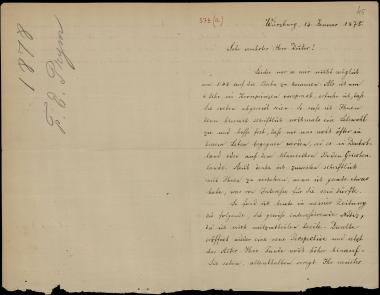 45
372 (a.)
Würzburg, 14. Januar 1878.
1878
F. E. Prym
Sehr verehrter Herr Doktor!
Leider war es mir nicht möglich
um 1.43 auf die Bahn zu kommen. Als ich um
4 Uhr im Kronprinzen vorsprach, erfuhr ich, daß
Sie soeben abgereist seien. So rufe ich Ihnen
denn hiermit schriftlich nochmals ein Lebewohl
zu und hoffe fest, daß wir uns noch öfter in
diesem Leben begegnen werden, sei es in Deutsch-
land oder auf dem klassischen Boden Griechen-
lands. Auch denke ich zuweilen schriftlich
mit Ihnen zu verkehren, wenn ich gerade etwas
habe, was von Interesse für Sie sein dürfte.
So fand ich heute in meiner Zeitung
die folgende, Sie gewiß interessirende Notiz,
die ich mich mitzutheilen beeile. Dieselbe
eröffnet wieder eine neue Perspective und
das Alter Ihrer Funde noch höher hinauf.
Sie sehen, allenthalben erregt Ihr